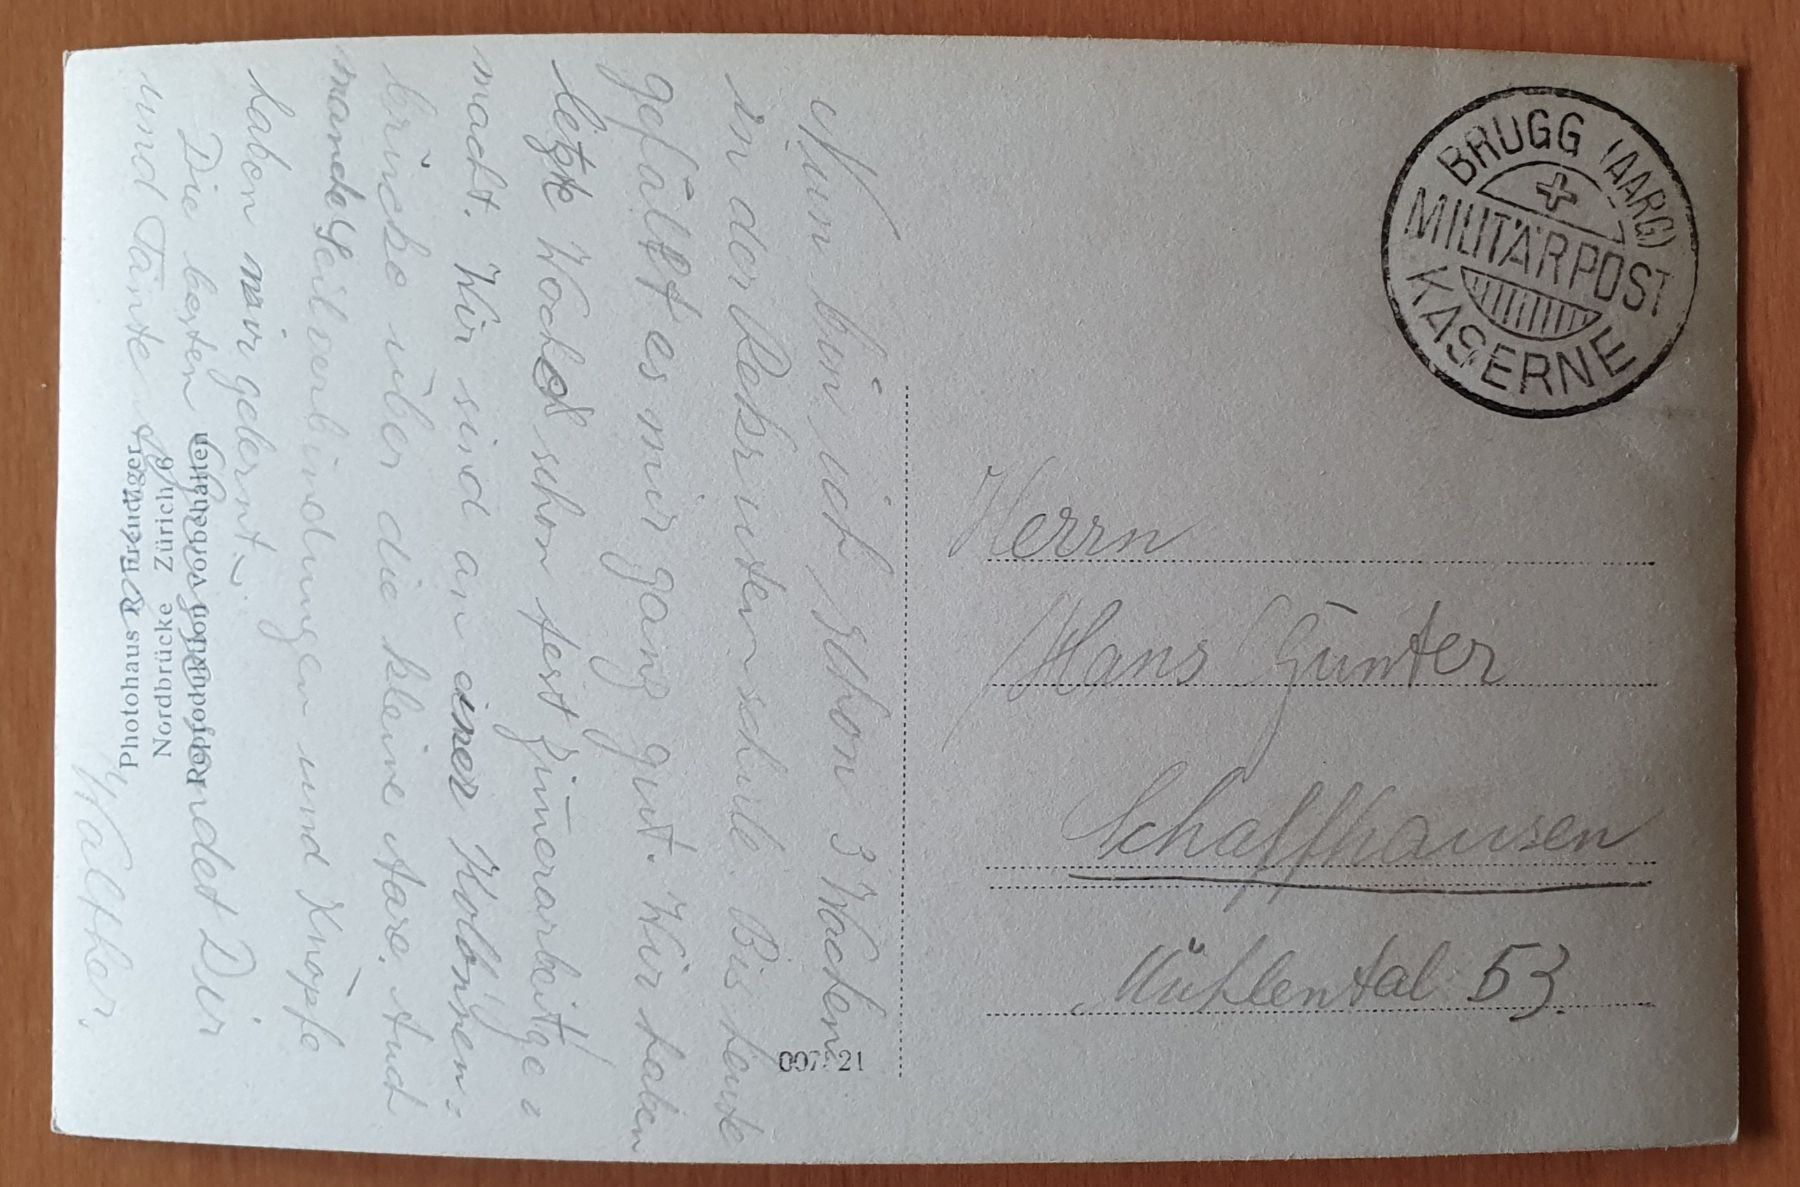 Nun bin ich schon 3 Wochen
in der Rekrutenschule. Bis heute
gefällt es mir ganz gut. Wir haben
letzte Woche schon fest Zim̄erarbeit ge-
macht. Wir sind an einer Kolonnen-
brücke über die kleine Aare. Auch
manche Seilverbindungen und Knöpfe
haben wir gelernt.
Die besten Grüsse sendet Dir
und Tante
Walther.
BRUGG (AARG)
MILITÄRPOST
KASERNE
Herrn
Hans Günter
Schaffhausen
Mühlental 53.
Photohaus R. Freudiger
Nordbrücke Zürich 6
Reproduktion vorbehalten